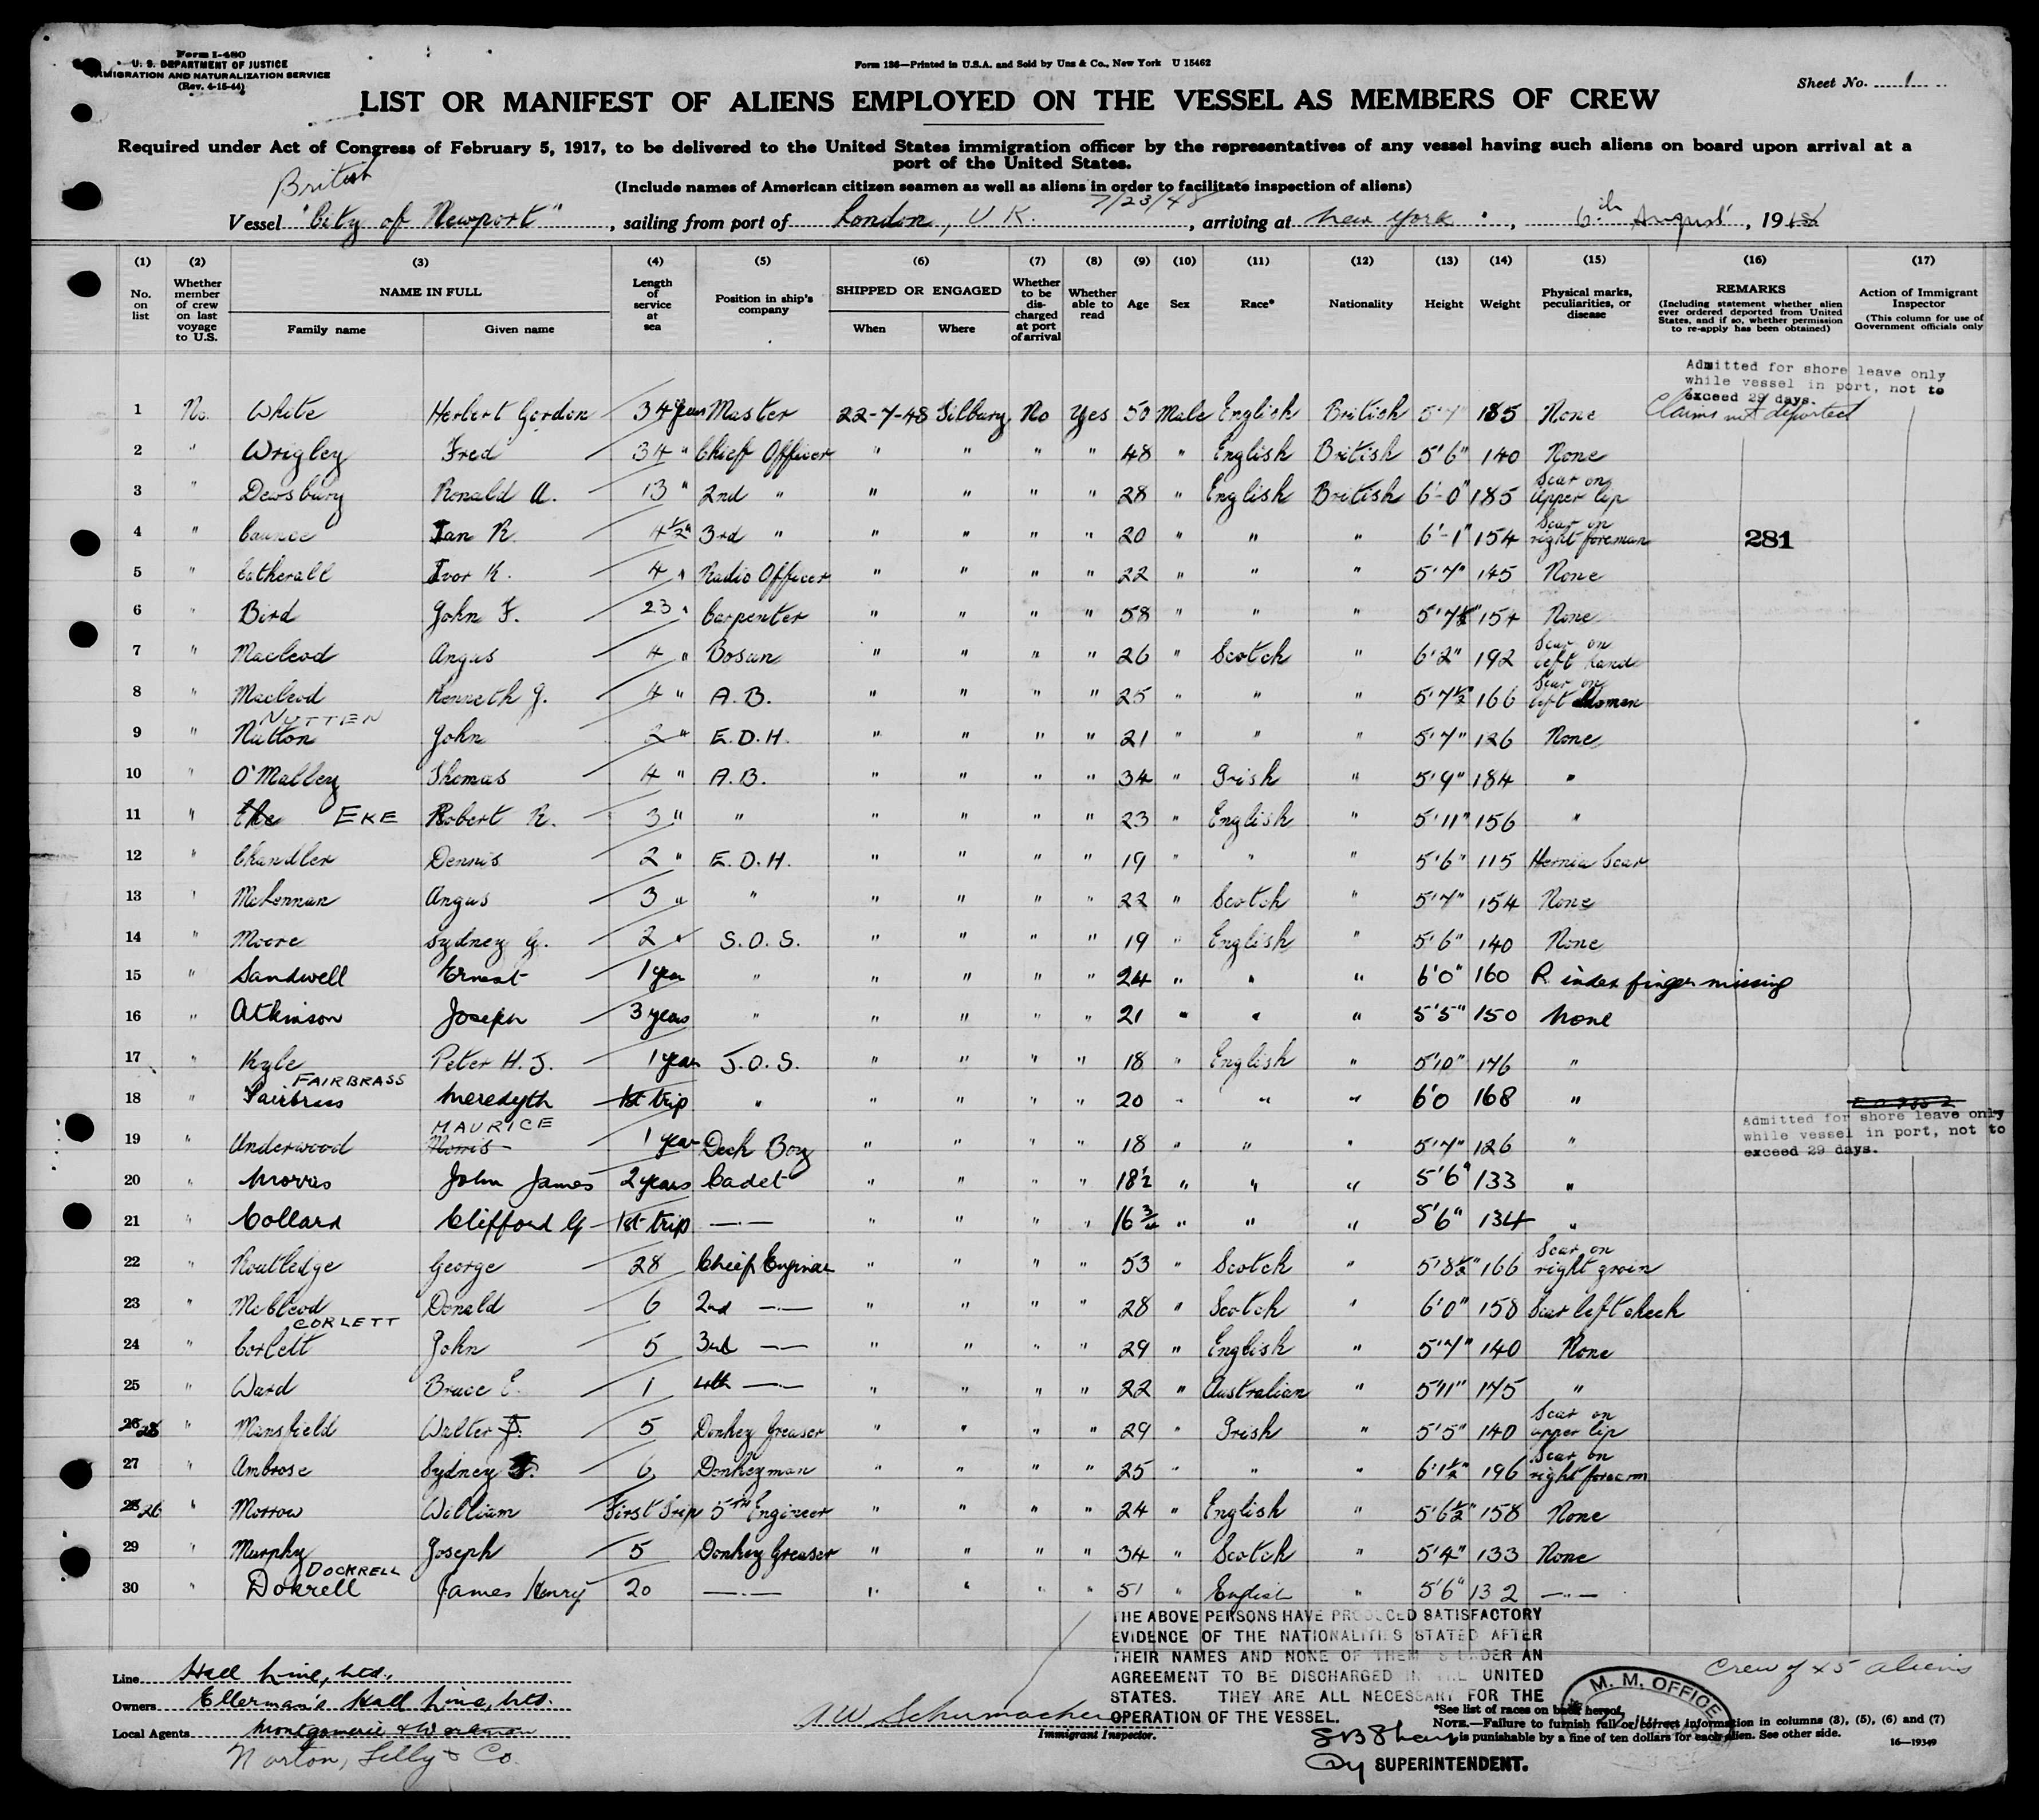 Form I-480
U. S. DEPARTMENT OF JUSTICE
IMMIGRATION AND NATURALIZATION SERVICE
(Rev. 4-15-44)
Form 136—Printed in U.S.A. and Sold by Unz & Co., New York U 15462
Sheet No. 1
LIST OR MANIFEST OF ALIENS EMPLOYED ON THE VESSEL AS MEMBERS OF CREW
Required under Act of Congress of February 5, 1917, to be delivered to the United States immigration officer by the representatives of any vessel having such aliens on board upon arrival at a
port of the United States.
(Include names of American citizen seamen as well as aliens in order to facilitate inspection of aliens)
British
7/23/48
Vessel "City of Newport", sailing from port of London, U.K., arriving at New York, 6th August, 1948
(1) (2) (3) (4) (5) (6) (7) (8) (9) (10) (11) (12) (13) (14) (15) (16) (17)
No. on list
Whether member of crew on last voyage to U.S.
NAME IN FULL
Family name
Given name
Length of service at sea
Position in ship's company
SHIPPED OR ENGAGED
When
Where
Whether to be discharged at port of arrival
Whether able to read
Age
Sex
Race*
Nationality
Height
Weight
Physical marks, peculiarities, or disease
REMARKS
(Including statement whether alien ever ordered deported from United States, and if so, whether permission to re-apply has been obtained)
Action of Immigrant Inspector
(This column for use of Government officials only
Admitted for shore leave only
while vessel in port, not to
exceed 29 days.
1 No. White Herbert Gordon 34 years Master 22-7-48 Tilbury No Yes 50 Male English British 5'7" 185 None Claims not deported
2 " Wrigley Fred 34 " Chief Officer " " " " 48 " English British 5'6" 140 None
3 " Dewsbury Ronald A. 13 " 2nd " " " " " 28 " English British 6'-0" 185 Scar on upper lip
4 " Caunce Ian R. 4½ " 3rd " " " " " 20 " " " 6'-1" 154 Scar on right foreman
281
5 " Catherall Ivor K. 4 " Radio Officer " " " " 22 " " " 5'7" 145 None
6 " Bird John F. 23 " Carpenter " " " " 58 " " " 5'7½" 154 None
7 " Macleod Angus 4 " Bosun " " " " 26 " Scotch " 6'2" 192 Scar on left hand
8 " Macleod Kenneth J. 4 " A.B. " " " " 25 " " " 5'7½" 166 Scar on left
NUTTEN
9 " Nutton John 2 " E.D.H. " " " " 21 " " " 5'7" 126 None
10 " O'Malley Thomas 4 " A.B. " " " " 34 " Irish " 5'9" 184 "
11 " Eke EKE Robert R. 3 " " " " " " 23 " English " 5'11" 156 "
12 " Chandler Dennis 2 " E.D.H. " " " " 19 " " " 5'6" 115 Hernia Scar
13 " McLennan Angus 3 " " " " " " 22 " Scotch " 5'7" 154 None
14 " Moore Sydney G. 2 " S.O.S. " " " " 19 " English " 5'6" 140 None
15 " Sandwell Ernest 1 year " " " " " 24 " " " 6'0" 160 R index finger missing
16 " Atkinson Joseph 3 years " " " " " 21 " " " 5'5" 150 None
17 " Kyle Peter H. J. 1 year J.O.S. " " " " 18 " English " 5'10" 146 "
FAIRBRASS
18 " Fairbrass Meredyth 1st trip " " " " " 20 " " " 6'0 168 "
MAURICE
19 " Underwood Morris 1 year Deck Boy " " " " 18 " " " 5'7" 126 "
Admitted for shore leave only
while vessel in port, not to
exceed 29 days.
20 " Morris John James 2 years Cadet " " " " 18½ " " " 5'6" 133 "
21 " Collard Clifford G 1st trip —·— " " " " 16¾ " " " 5'6" 134 "
22 " Routledge George 28 Chief Engineer " " " " 53 " Scotch " 5'8½" 166 Scar on right groin
23 " McCleod Donald 6 2nd —·— " " " " 28 " Scotch " 6'0" 158 Scar left cheek
CORLETT
24 " Corlett John 5 3rd —·— " " " " 29 " English " 5'7" 140 None
25 " Ward Bruce E. 1 4th —·— " " " " 22 " Australian " 5'11" 175 "
26 28 " Mansfield Walter J. 5 Donkey Greaser " " " " 29 " Irish " 5'5" 140 Scar on upper lip
27 " Ambrose Sydney 6 Donkeyman " " " " 25 " " " 6'1½" 196 Scar on right forearm
28 26 " Morrow William First Trip 5TH Engineer " " " " 24 " English " 5'6½" 158 None
29 " Murphy Joseph 5 Donkey Greaser " " " " 34 " Scotch " 5'4" 133 None
DOCKRELL
30 " Dokrell James Henry 20 —·— " " " " 51 " English " 5'6" 132 —·—
THE ABOVE PERSONS HAVE PRODUCED SATISFACTORY
EVIDENCE OF THE NATIONALITIES STATED AFTER
THEIR NAMES AND NONE OF THEM IS UNDER AN
AGREEMENT TO BE DISCHARGED IN THE UNITED
STATES. THEY ARE ALL NECESSARY FOR THE
OPERATION OF THE VESSEL.
Crew of 45 aliens
M. M. OFFICE
Line Hall Line, Ltd.,
Owners Ellerman's Hall Line, Ltd.
Local Agents Montgomerie & Workman
Norton, Lilly & Co.
A W Schumacher
Immigrant Inspector.
*See list of races on back hereof.
NOTE.—Failure to furnish full or correct information in columns (3), (5), (6) and (7)
is punishable by a fine of ten dollars for each alien. See other side.
16—19349
Dy SUPERINTENDENT.